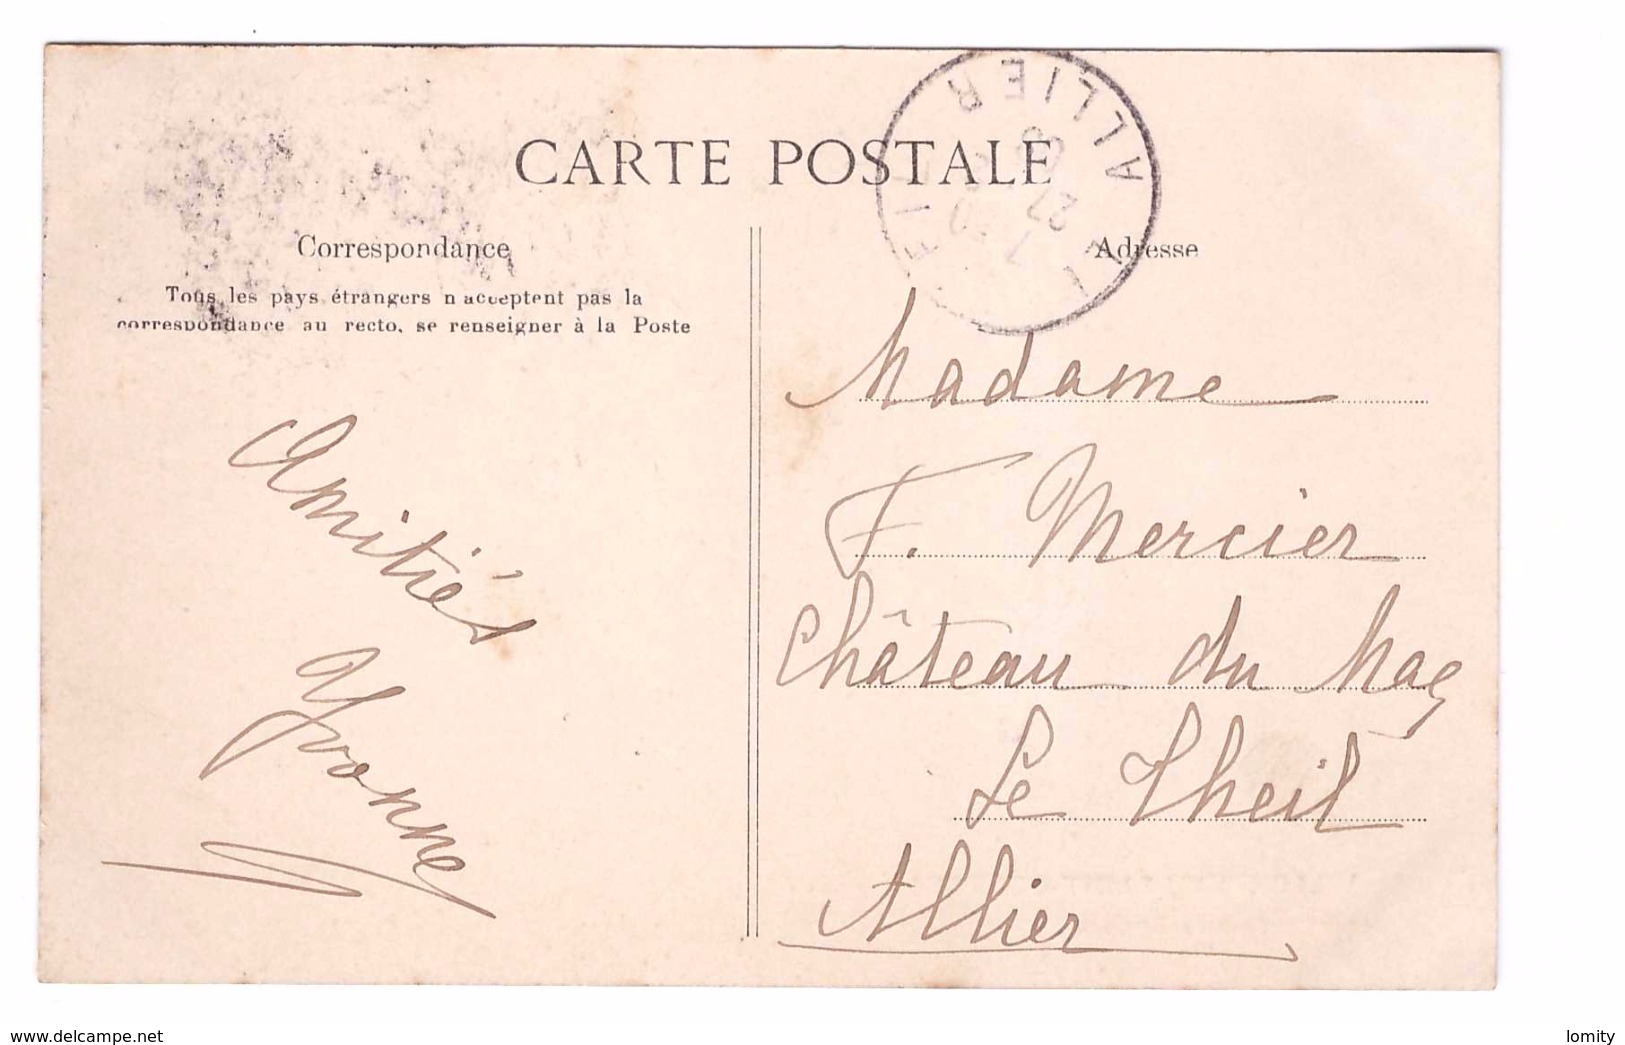 CARTE POSTALE
ALLIER
27
Correspondance
Adresse
Tous les pays étrangers n'acceptent pas la
correspondance au recto, se renseigner à la Poste
Amitiés
Yvonne
Madame
F. Mercier
Château du May
Le Theil
Allier
www.delcampe.net
lomity